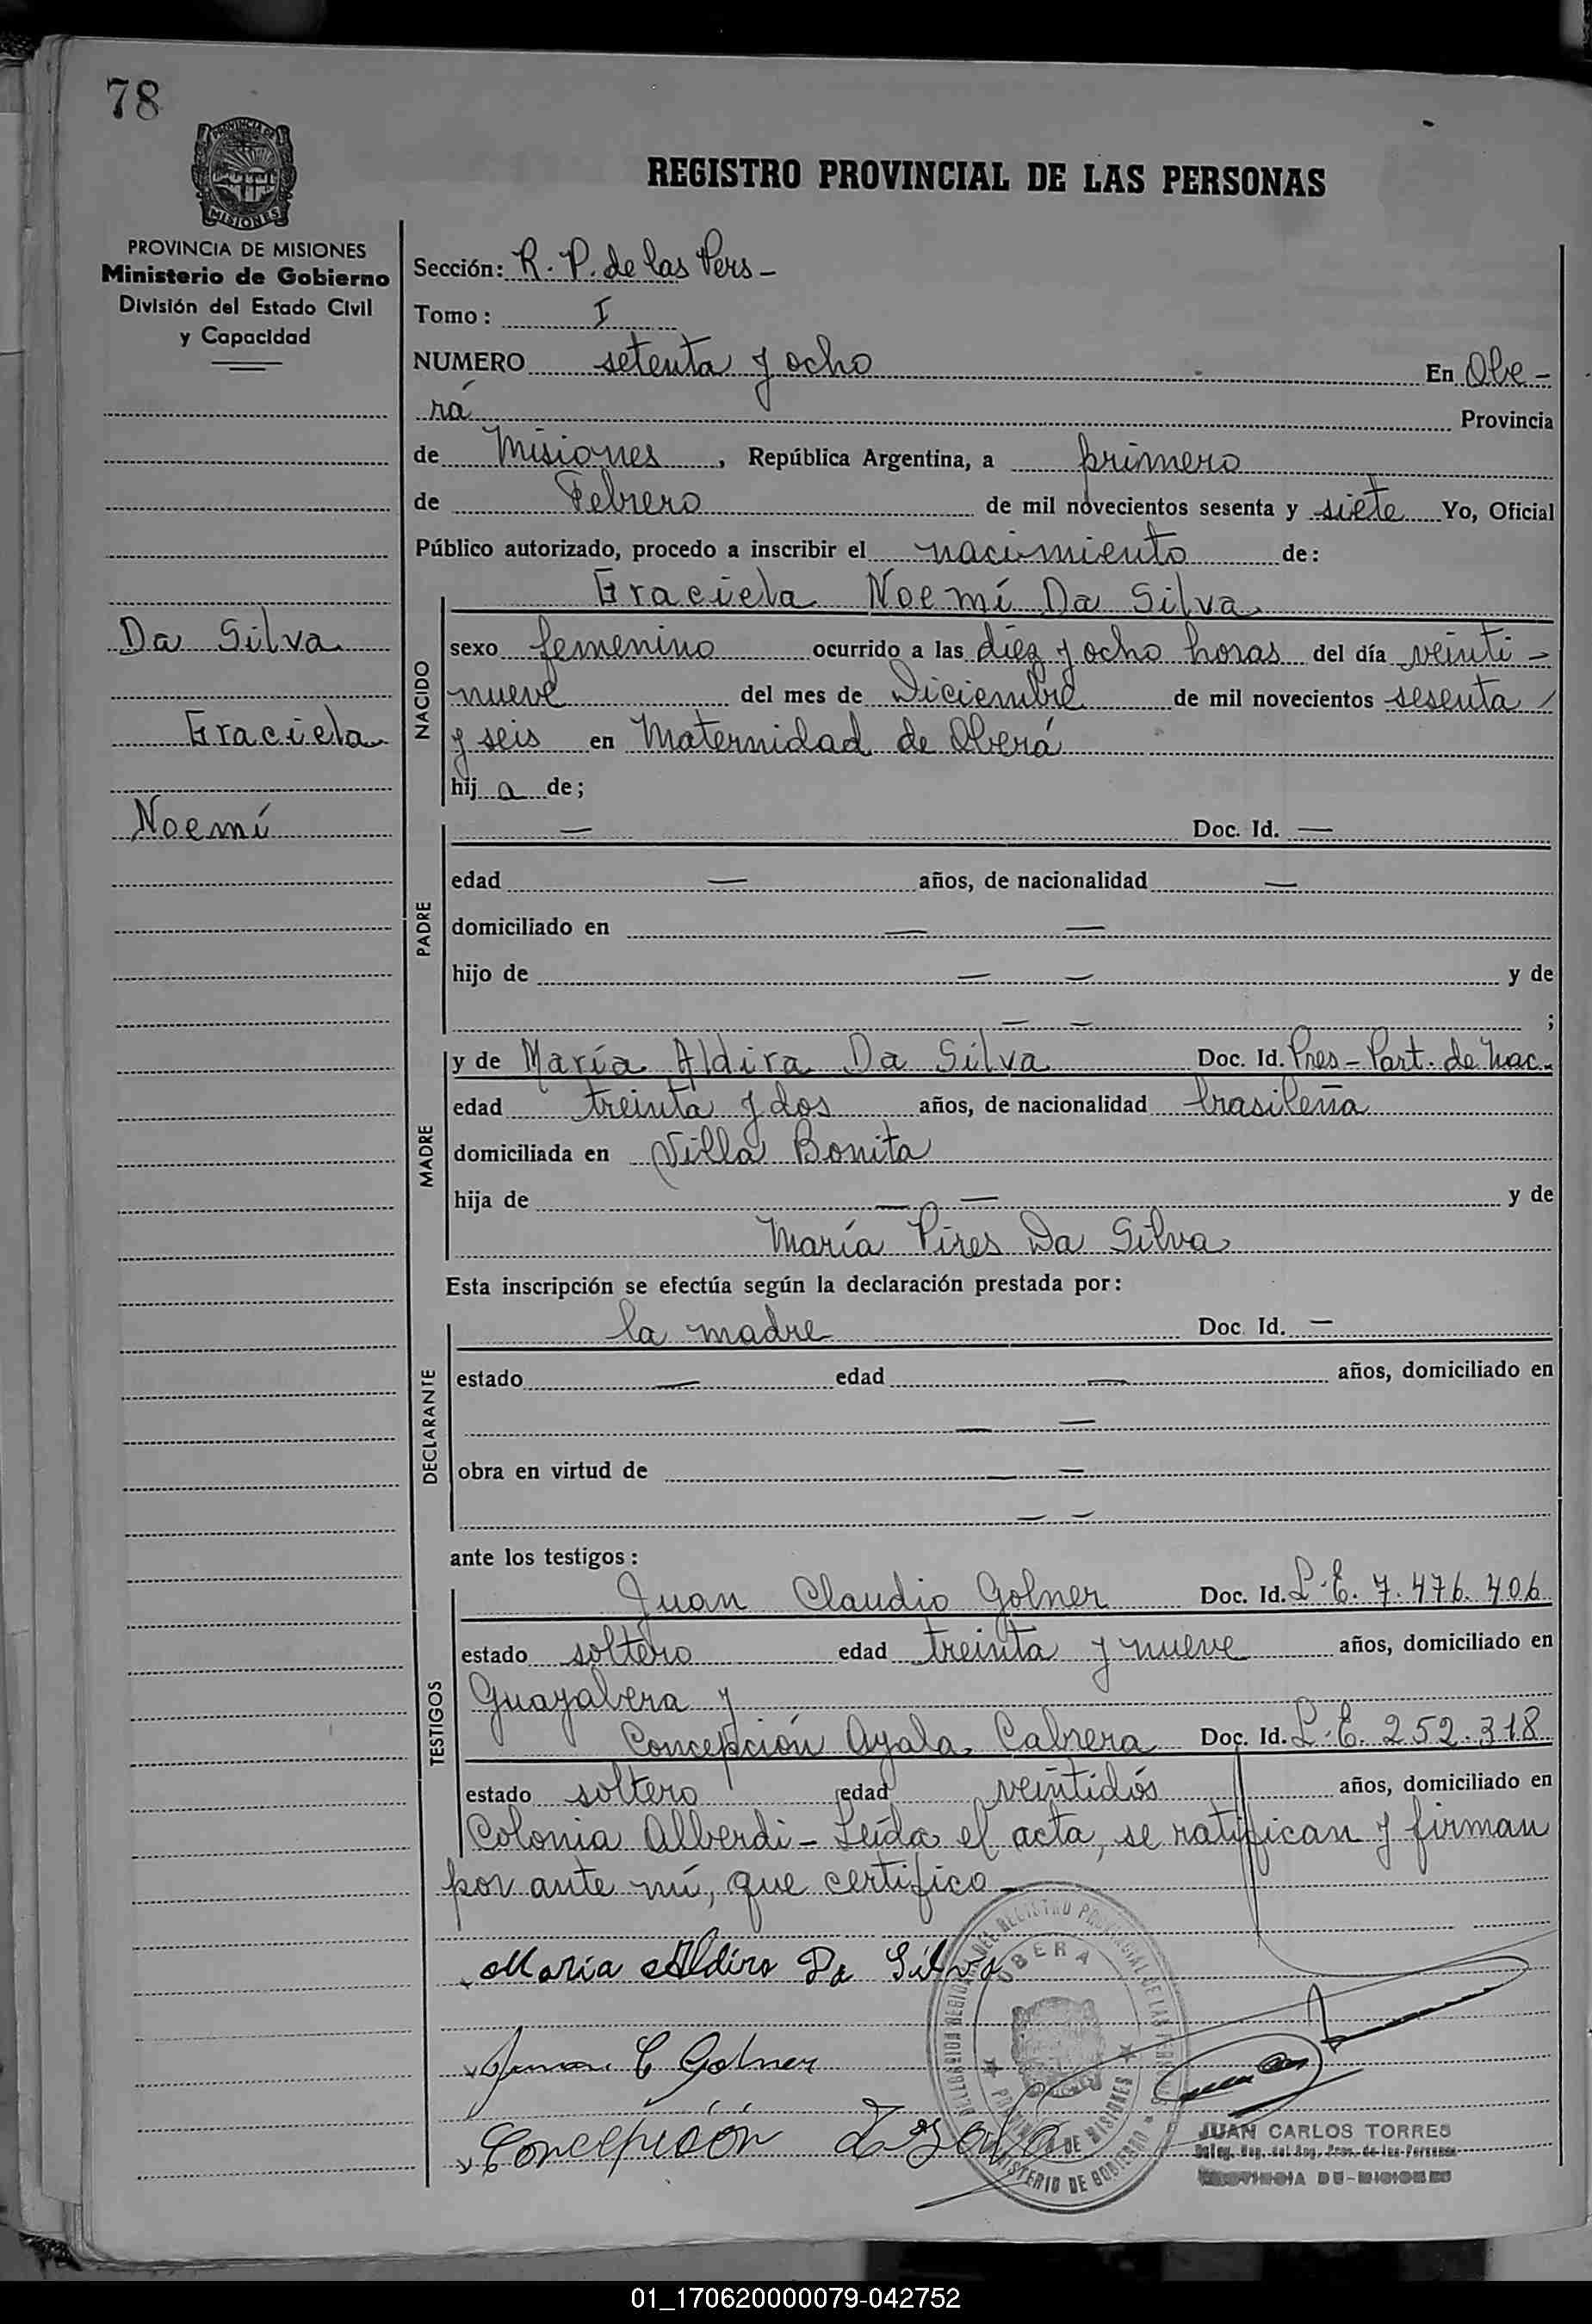 78
PROVINCIA DE
MISIONES
REGISTRO PROVINCIAL DE LAS PERSONAS
PROVINCIA DE MISIONES
Ministerio de Gobierno
División del Estado Civil
y Capacidad
Da Silva
Graciela
Noemí
Sección: R. P. de las Pers -
Tomo: I
NUMERO setenta y ocho En Obe -
rá Provincia
de Misiones, República Argentina, a primero
de Febrero de mil novecientos sesenta y siete Yo, Oficial
Público autorizado, procedo a inscribir el nacimiento de:
NACIDO
Graciela Noemí Da Silva
sexo femenino ocurrido a las diez y ocho horas del día veinti -
nueve del mes de Diciembre de mil novecientos sesenta
y seis en Maternidad de Oberá
hij a de;
PADRE
— Doc. Id. —
edad — años, de nacionalidad —
domiciliado en — —
hijo de — — y de
— — ;
MADRE
y de María Aldira Da Silva Doc. Id. Pres - Part. de Nac.
edad treinta y dos años, de nacionalidad brasileña
domiciliada en Villa Bonita
hija de — — y de
María Pires Da Silva
Esta inscripción se efectúa según la declaración prestada por:
DECLARANTE
la madre Doc. Id. —
estado — edad — años, domiciliado en
— —
obra en virtud de — —
— —
ante los testigos:
TESTIGOS
Juan Claudio Golner Doc. Id. L. E. 7.476.406
estado soltero edad treinta y nueve años, domiciliado en
Guayabera y
Concepción Ayala Cabrera Doc. Id. L. E. 252.318
estado soltero edad veintidós años, domiciliado en
Colonia Alberdi - Leída el acta, se ratifican y firman
por ante mí, que certifico -
Maria Aldira Da Silva
Juan C Golner
Concepción
DELEGACION REGIONAL DEL REGISTRO PROVINCIAL DE LAS PERSONAS
OBERA
PROVINCIA DE MISIONES
MINISTERIO DE GOBIERNO
JUAN CARLOS TORRES
Deleg. Reg. del Reg. Prov. de las Personas
PROVINCIA DE MISIONES
01_170620000079-042752